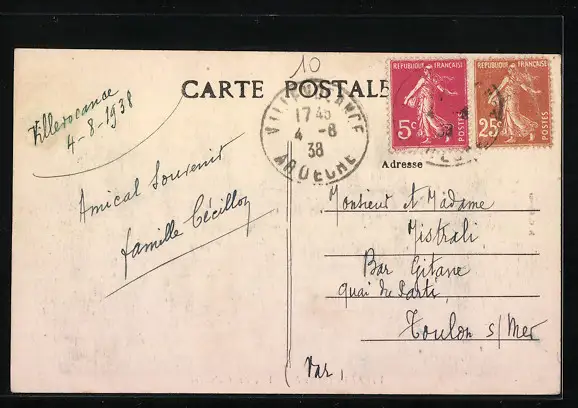 10
CARTE POSTALE
Villevocance
4-8-1938
Amical Souvenir
famille Cécillon
VILLEVOCANCE
17 45
4 -8
38
ARDECHE
REPUBLIQUE FRANÇAISE
5c
POSTES
REPUBLIQUE FRANÇAISE
25c
POSTES
Adresse
Monsieur et Madame
Mistrali
Bar Gitane
quai du
Toulon s/Mer
(Var)